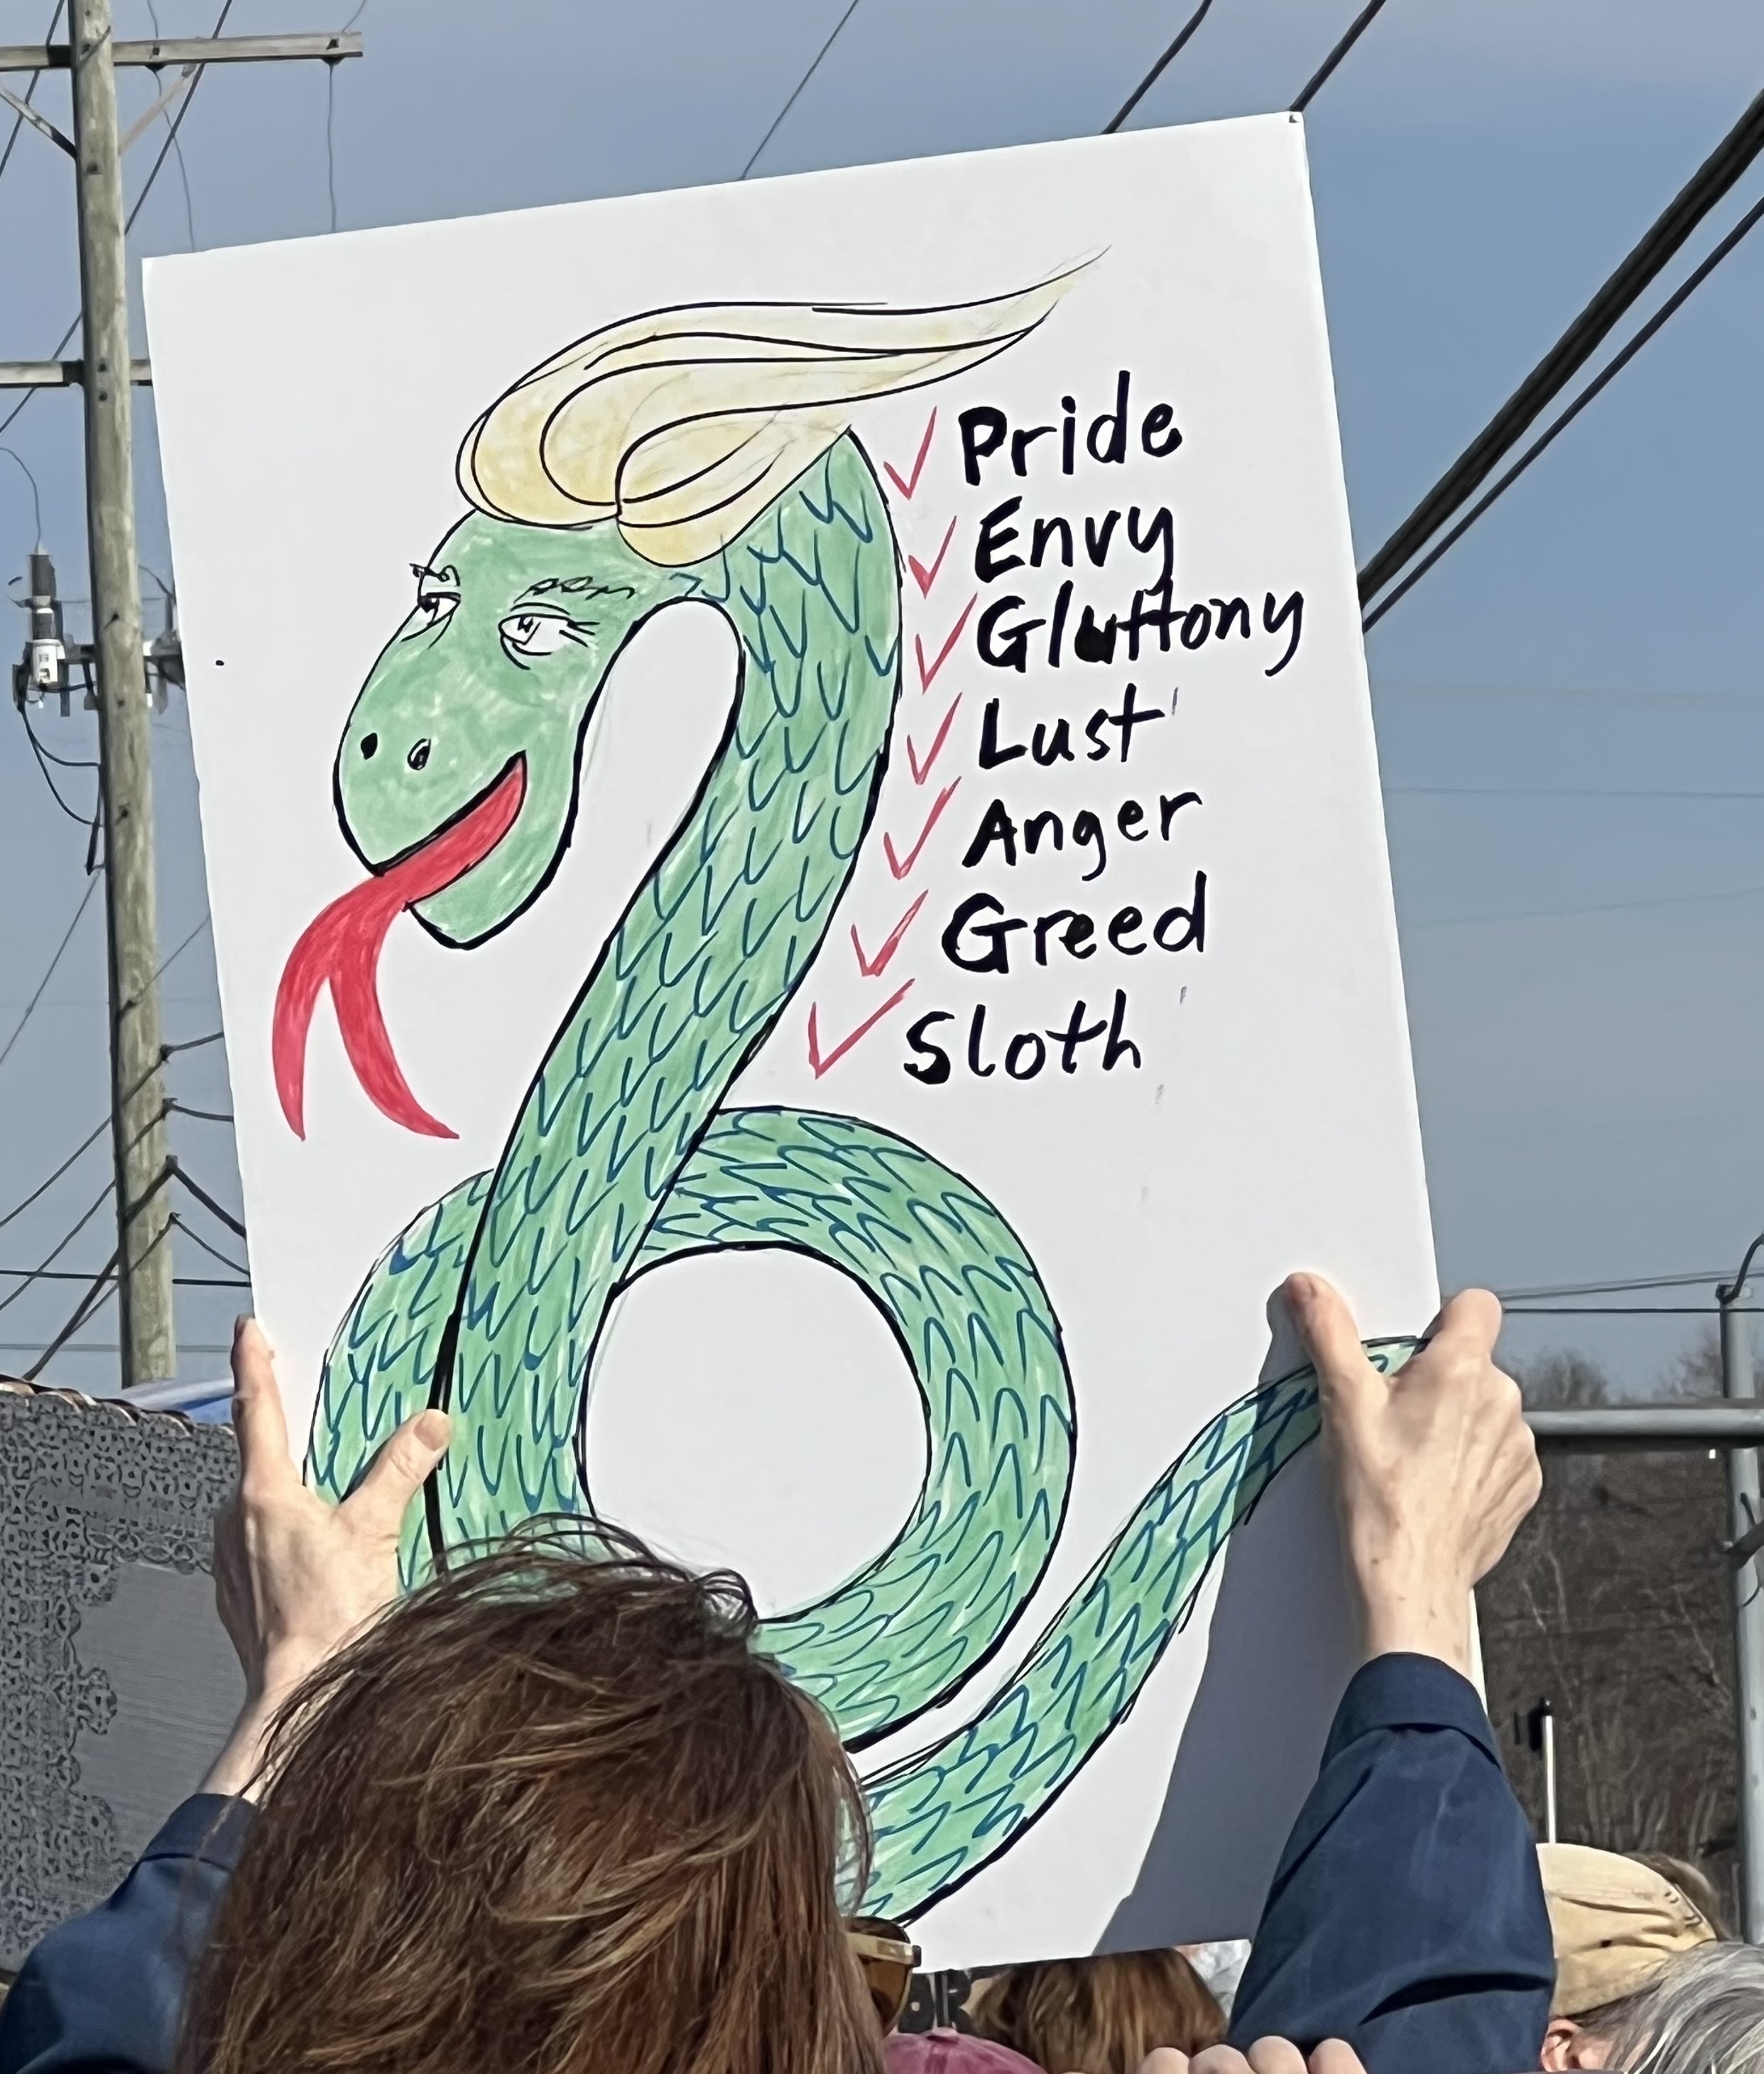 Pride
Envy
Gluttony
Lust
Anger
Greed
Sloth